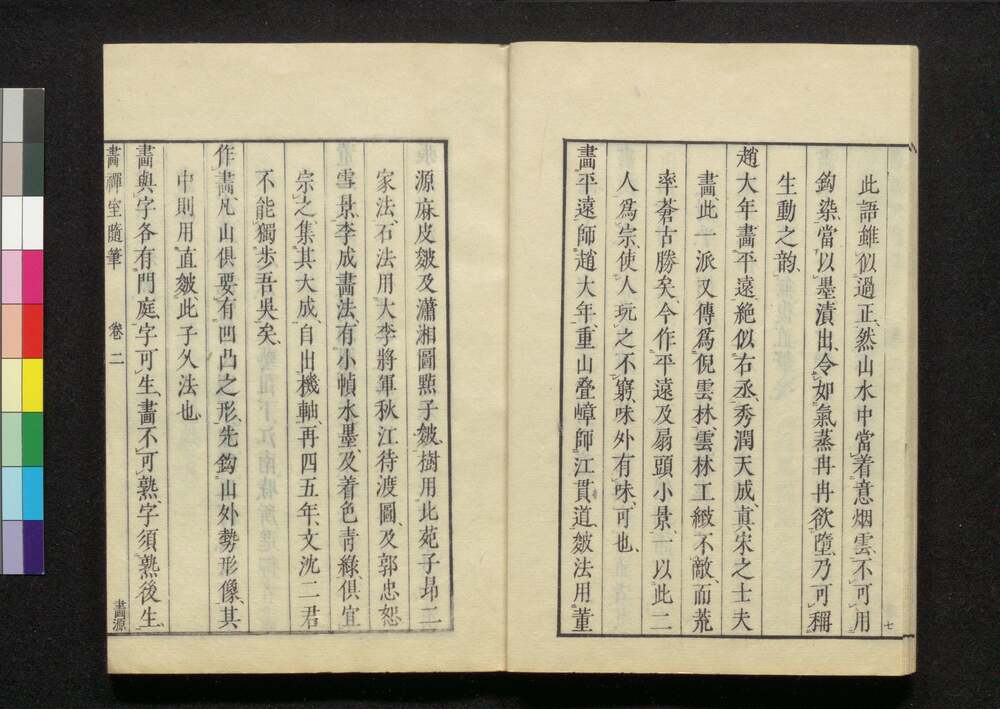 此語雖似過正、然山水中當着意烟雲、不可用
鈎染、當以墨漬出、令如氣蒸冉冉欲墮、乃可稱
生動之韵、
趙大年畵平遠、絶似右丞、秀潤天成、眞宋之士夫
畵、此一派又傳爲倪雲林、雲林工緻不敵、而荒
率蒼古勝矣、今作平遠及扇頭小景、一以此二
人爲宗、使人玩之不窮、味外有味、可也、
畵平遠師趙大年、重山疊嶂師江貫道、皴法用董
七
源麻皮皴及瀟湘圖㸃子皴、樹用北苑子昻二
家法、石法用大李將軍秋江待渡圖、及郭忠恕
雪景、李成畵法、有小幀水墨及着色青緑、俱宜
宗之、集其大成、自出機軸、再四五年、文沈二君
不能獨步吾吳矣、
作畵、凡山俱要有凹凸之形、先鈎山外勢形像、其
中則用直皴、此子久法也、
畵與字各有門庭、字可生、畵不可熟、字須熟後生、
畵禪室隨筆　卷二
畵源